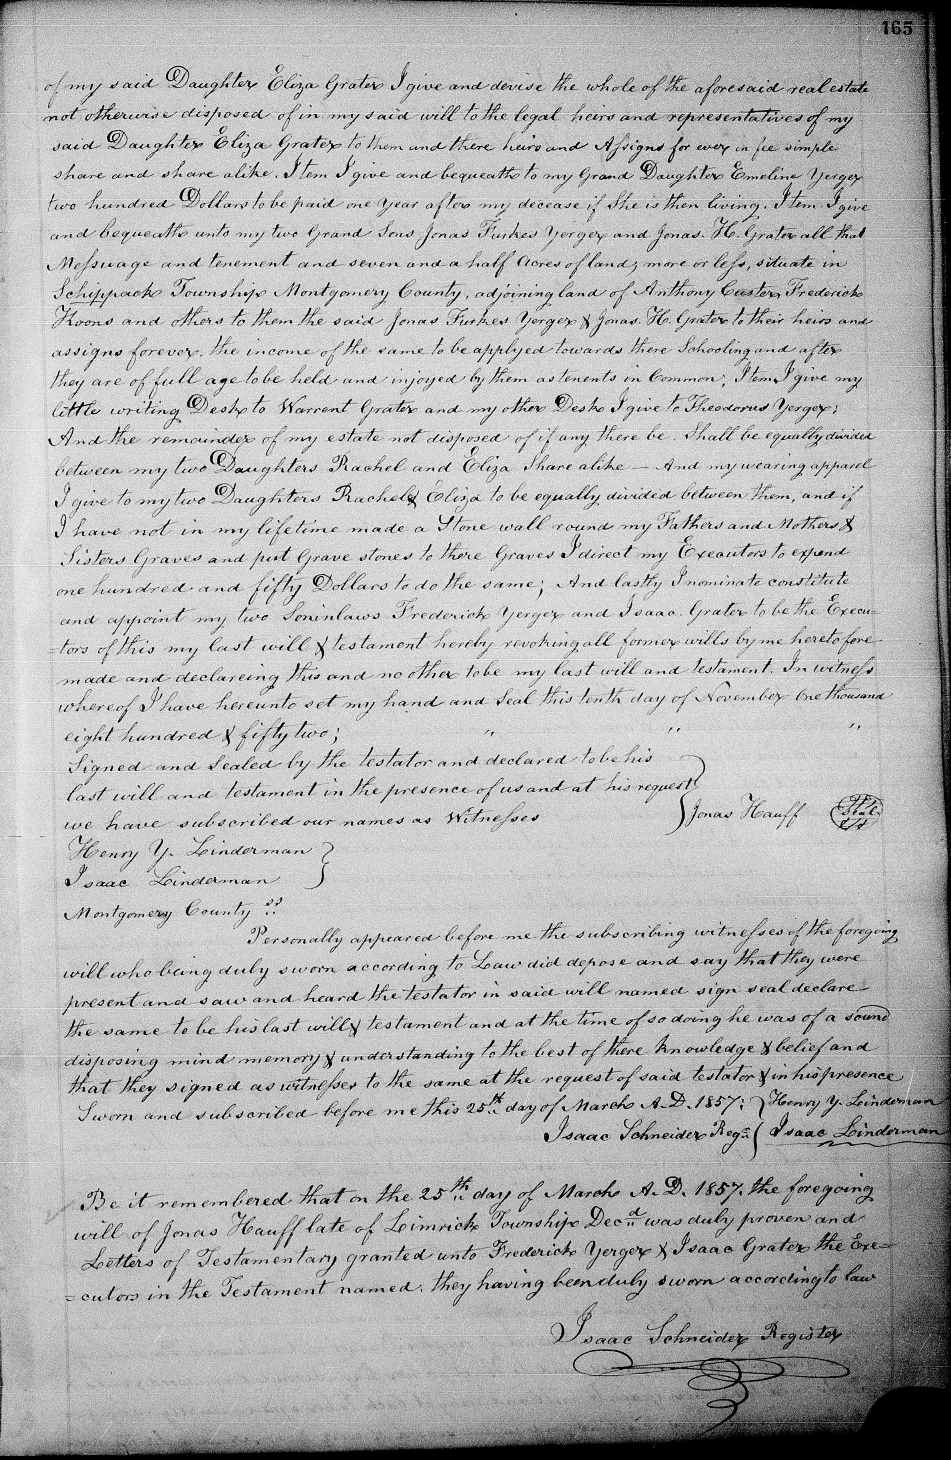 165
of my said Daughter Eliza Grater I give and devise the whole of the aforesaid real estate
not otherwise disposed of in my said will to the legal heirs and representatives of my
said Daughter Eliza Grater to them and there heirs and Assigns for ever in fee simple
share and share alike. Item I give and bequeath to my Grand Daughter Emeline Yerger
two hundred Dollars to be paid one Year after my decease if She is then living. Item I give
and bequeath unto my two Grand Sons Jonas Furkes Yerger and Jonas. H. Grater all that
Messuage and tenement and seven and a half Acres of land; more or less, situate in
Schippack Township Montgomery County, adjoining land of Anthony Custer, Frederick
Koons and others to them the said Jonas Furkes Yerger & Jonas. H. Grater to their heirs and
assigns forever. the income of the same to be applyed towards there Schooling and after
they are of full age to be held and injoyed by them as tenents in Common; Item I give my
little writing Desk to Warrent Grater and my other Desk I give to Theodorus Yerger;
And the remainder of my estate not disposed of if any there be. Shall be equally divided
between my two Daughters Rachel and Eliza Share alike — And my wearing apparel
I give to my two Daughters Rachel & Eliza to be equally divided between them, and if
I have not in my lifetime made a Stone wall round my Fathers and Mothers &
Sisters Graves and put Grave stones to there Graves I direct my Executors to expend
one hundred and fifty Dollars to do the same; And lastly I nominate constitute
and appoint my two Soninlaws Frederick Yerger and Isaac. Grater to be the Execu-
=tors of this my last will & testament hereby revoking all former wills by me heretofore
made and declareing this and no other to be my last will and testament. In witness
whereof I have hereunto set my hand and Seal this tenth day of November One thousand
eight hundred & fifty two; " " "
Signed and Sealed by the testator and declared to be his
last will and testament in the presence of us and at his request
we have subscribed our names as Witnesses Jonas Hauff Seal
Henry Y. Linderman
Isaac Linderman
Montgomery County ss
Personally appeared before me the subscribing witnesses of the foregoing
will who being duly sworn according to Law did depose and say that they were
present and saw and heard the testator in said will named sign seal declare
the same to be his last will & testament and at the time of so doing he was of a sound
disposing mind memory & understanding to the best of there knowledge & belief and
that they signed as witnesses to the same at the request of said testator & in his presence
Sworn and subscribed before me this 25th day of March A.D. 1857; Henry Y. Linderman
Isaac Schneider Regr Isaac Linderman
Be it remembered that on the 25th day of March A.D. 1857. the foregoing
will of Jonas Hauff late of Limrick Township Decd was duly proven and
Letters of Testamentary granted unto Frederick Yerger & Isaac Grater the Exe=
=cutors in the Testament named. they having been duly sworn according to law
Isaac Schneider Register